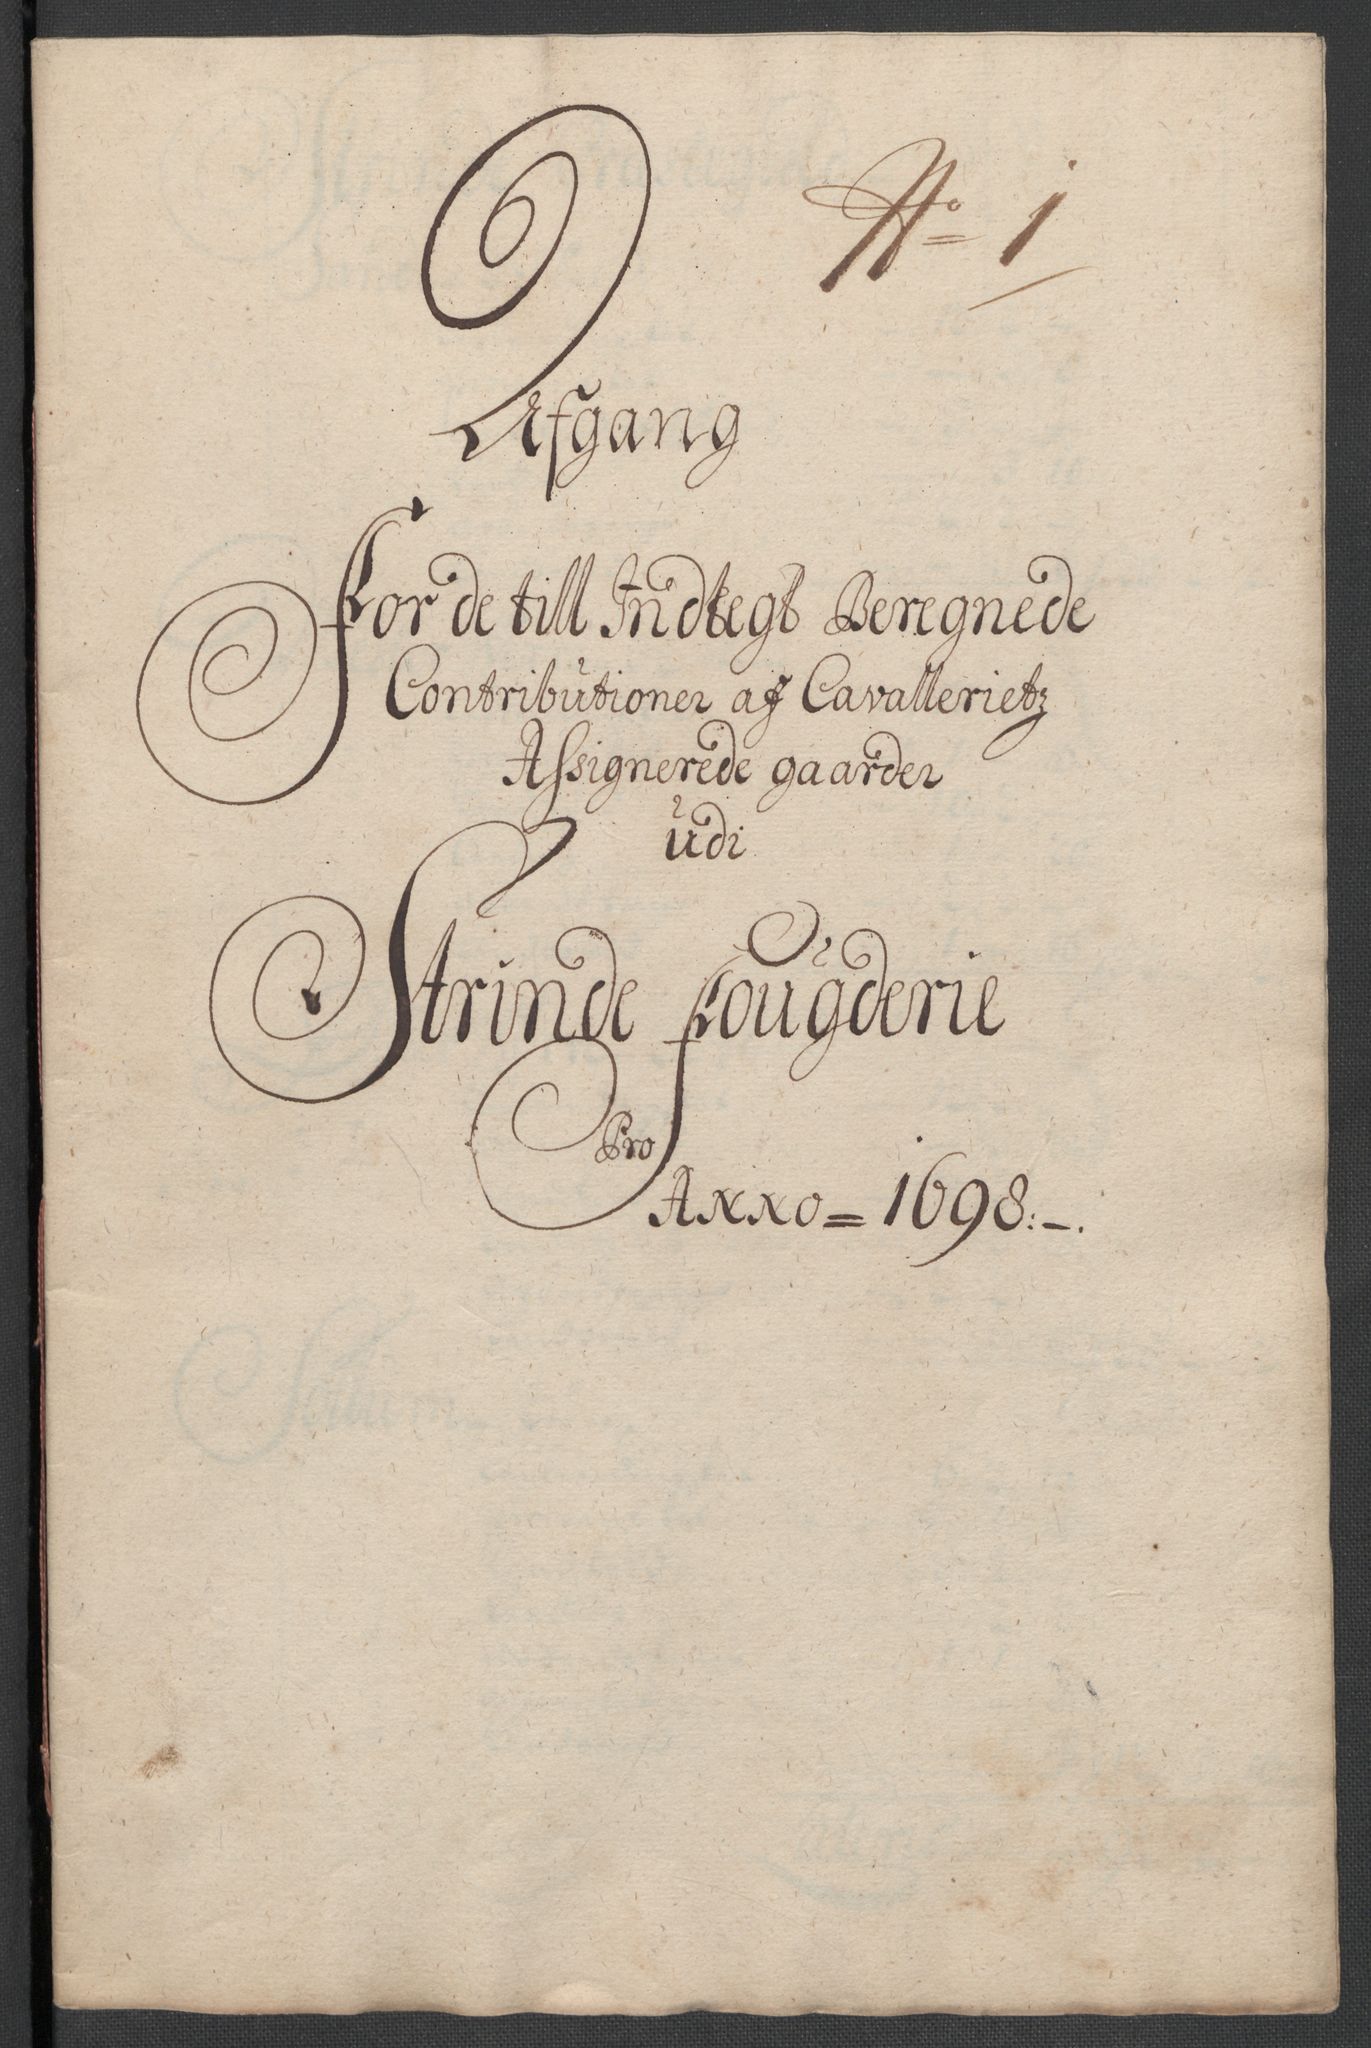 No 1
Afgang
For de till Indtegt Beregnede
Contributioner af Cavallerietz
Assignerede gaarder
udi
Strinde fougderie
Pro
Anno = 1698:-.